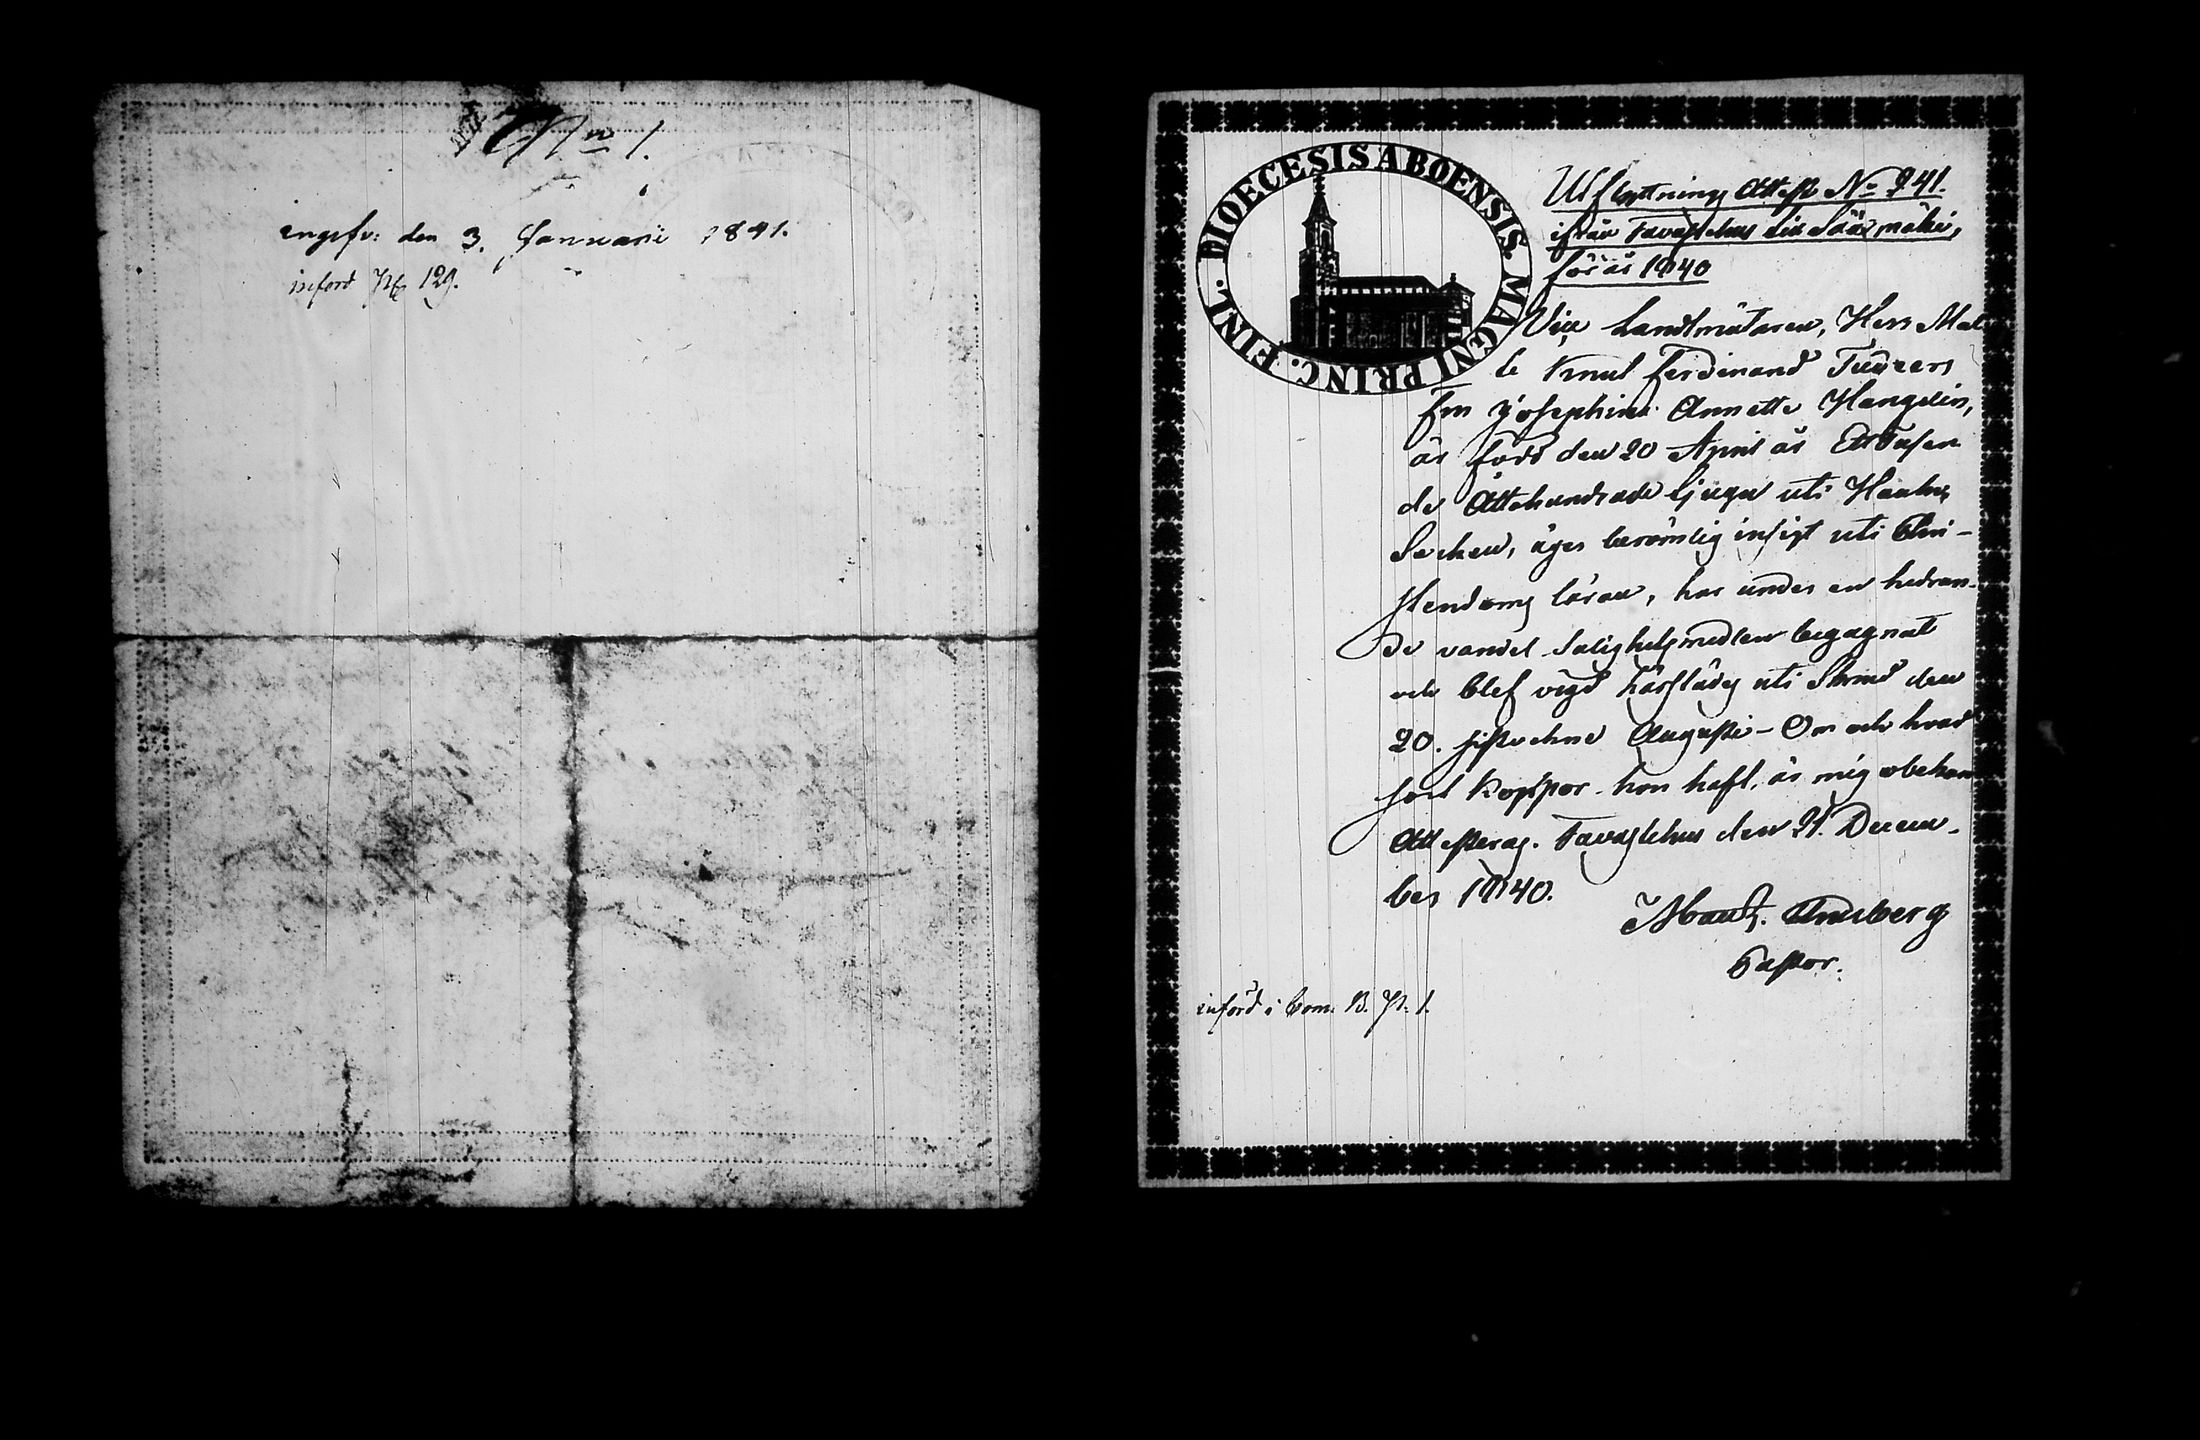 No 1.
ingifv: den 3. Januarii 1841.
införd 129.
DIOECESIS ABOENSIS. MAGNI PRINC. FINL.
Utflyttning Attest No 241.
ifrån Tavastehus till Sääxmäki,
för år 1840
Vice Landtmätaren, Herr
Knut Ferdinand
Fru Josephina Annette
är född den 20 April år Ett Tusen
de Åttahundrade tjugu uti
Socken, äger berömlig insigt uti Chri-
stendoms läran, har under en hedran-
de vandel Salighetsmedlen begagnat
och blef vigd härstädes uti Stånd den
20. sistledne Augusti - Om och hvad
sort Koppor hon haft, är mig obekant
Attesteras. Tavastehus den 21. Decem-
ber 1840.
Pastor.
införd i Com. B. P. 1.